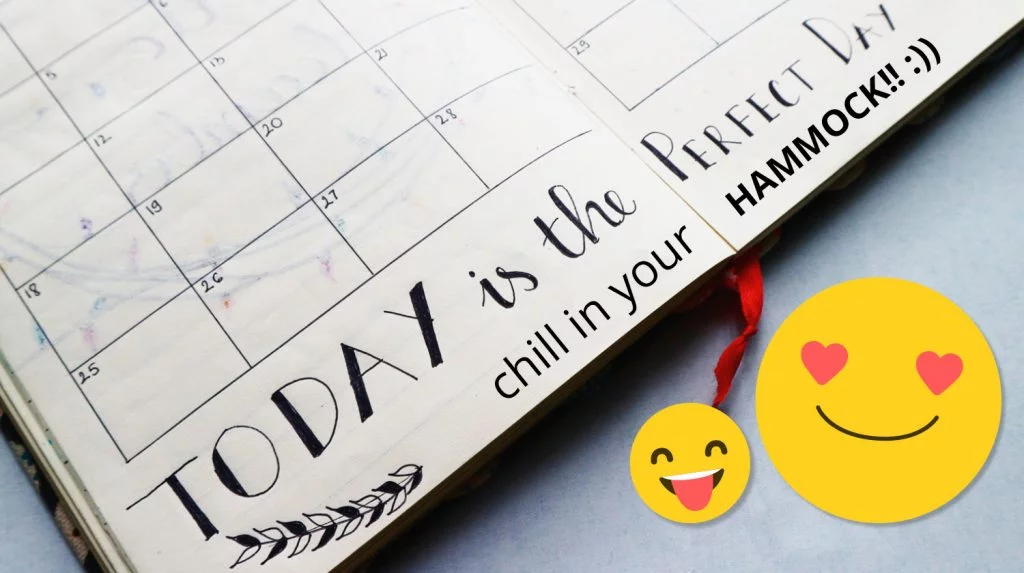 5 6
12 13
18 19 20 21
25 26 27 28
29
TODAY is the PERFECT DAY
chill in your HAMMOCK!! :))